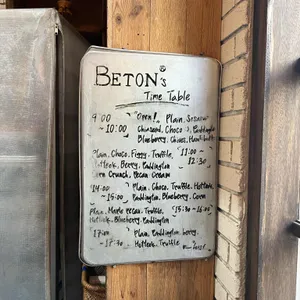 BETON's
Time Table
9:00 Open! Plain,
~ 10:00 Choco, Paddington
Blueberry,
Plain, Choco, Figgy, Truffle, 11:00 ~
Hotteok, Berry, Paddington 12:30
Corn Crunch, Pecan Cream
14:00 Plain, Choco, Truffle, Hotteok,
~ 15:00 Paddington, Blueberry, Corn
Plain, Maple pecan, Truffle, 15:30 ~ 16:00
Hotteok, Blueberry, Paddington
17:00 Plain, Paddington, berry,
~ 17:30 Hotteok, Truffle